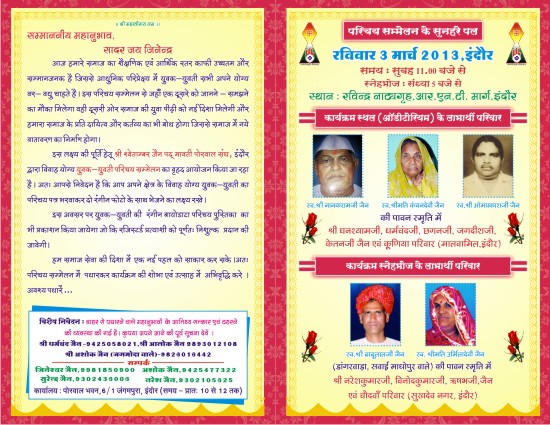 ॥ श्री महावीराय नमः ॥
सम्माननीय महानुभाव,
सादर जय जिनेन्द्र
आज हमारे समाज का शैक्षणिक एवं आर्थिक स्तर काफी उच्चतम और
सम्मानजनक है जिससे आधुनिक परिप्रेक्ष्य में युवक-युवती सभी अपने योग्य
वर-वधु चाहते है। इस परिचय सम्मेलन से जहाँ एक दूसरे को जानने - समझने
का मौका मिलेगा वही दूसरी ओर समाज की युवा पीढ़ी को नई दिशा मिलेगी और
हमारा समाज के प्रति दायित्व और कर्तव्य का भी बोध होगा जिससे समाज में नये
वातावरण का निर्माण होगा।
इस लक्ष्य की पूर्ति हेतु श्री श्वेताम्बर जैन पद्मावती पोरवाल संघ, इंदौर
द्वारा विवाह योग्य युवक-युवती परिचय सम्मेलन का वृहद आयोजन किया जा रहा
है। अतः आपसे निवेदन है कि आप अपने क्षेत्र के विवाह योग्य युवक-युवती का
परिचय पत्र भरवाकर दो रंगीन फोटो के साथ भेजने का लक्ष्य रखे।
इस अवसर पर युवक-युवती की रंगीन बायोडाटा परिचय पुस्तिका का
भी प्रकाशन किया जायेगा जो कि रजिस्टर्ड प्रत्याशी को पूर्णतः निशुल्क प्रदान की
जावेगी।
हम समाज सेवा की दिशा में एक नई पहल को साकार कर सके।अतः
परिचय सम्मेलन में पधारकर कार्यक्रम की शोभा एवं उत्साह में अभिवृद्धि करे।
अवश्य पधारें ...
विशेष निवेदन : बाहर से पधारने वाले महानुभावों के आतिथ्य-सत्कार एवं ठहरने
की व्यवस्था की गई है। कृपया आपने आने की पूर्व सूचना देवें।
श्री धर्मचंद जैन-9425058021,श्री अशोक जैन 9893012108
श्री अशोक जैन (जगमोदा वाले)-9826016442
सम्पर्क
जिनेश्वर जैन,9981850900 अशोक जैन,9425477322
सुरेन्द्र जैन,9302436000 नरेश जैन,9302105025
कार्यालय : पोरवाल भवन,6/1 जंगमपुरा, इंदौर (समय - प्रातः 10 से 12 तक)
परिचय सम्मेलन के सुनहरे पल
रविवार 3 मार्च 2013,इंदौर
समय : सुबह 11.00 बजे से
स्नेहभोज : संध्या 5 बजे से
स्थान : रविन्द्र नाट्यगृह,आर.एन.टी. मार्ग,इंदौर
कार्यक्रम स्थल (ऑडीटोरियम) के लाभार्थी परिवार
स्व.श्री नानकरामजी जैन स्व.श्रीमति कंचनदेवी जैन स्व.श्री ओमप्रकाशजी जैन
की पावन स्मृति में
श्री घनश्यामजी, धर्मचंदजी, छगनजी, जगदीशजी,
केतनजी जैन एवं कूणिया परिवार (मालवामिल,इंदौर)
कार्यक्रम स्नेहभोज के लाभार्थी परिवार
स्व.श्री बाबूलालजी जैन स्व. श्रीमती उर्मिलादेवी जैन
(डांगरवाड़ा, सवाई माधोपुर वाले) की पावन स्मृति में
श्री नरेशकुमारजी, विनोदकुमारजी, ऋषभजी,जैन
एवं चौदवाँ परिवार (सुखदेव नगर, इंदौर)